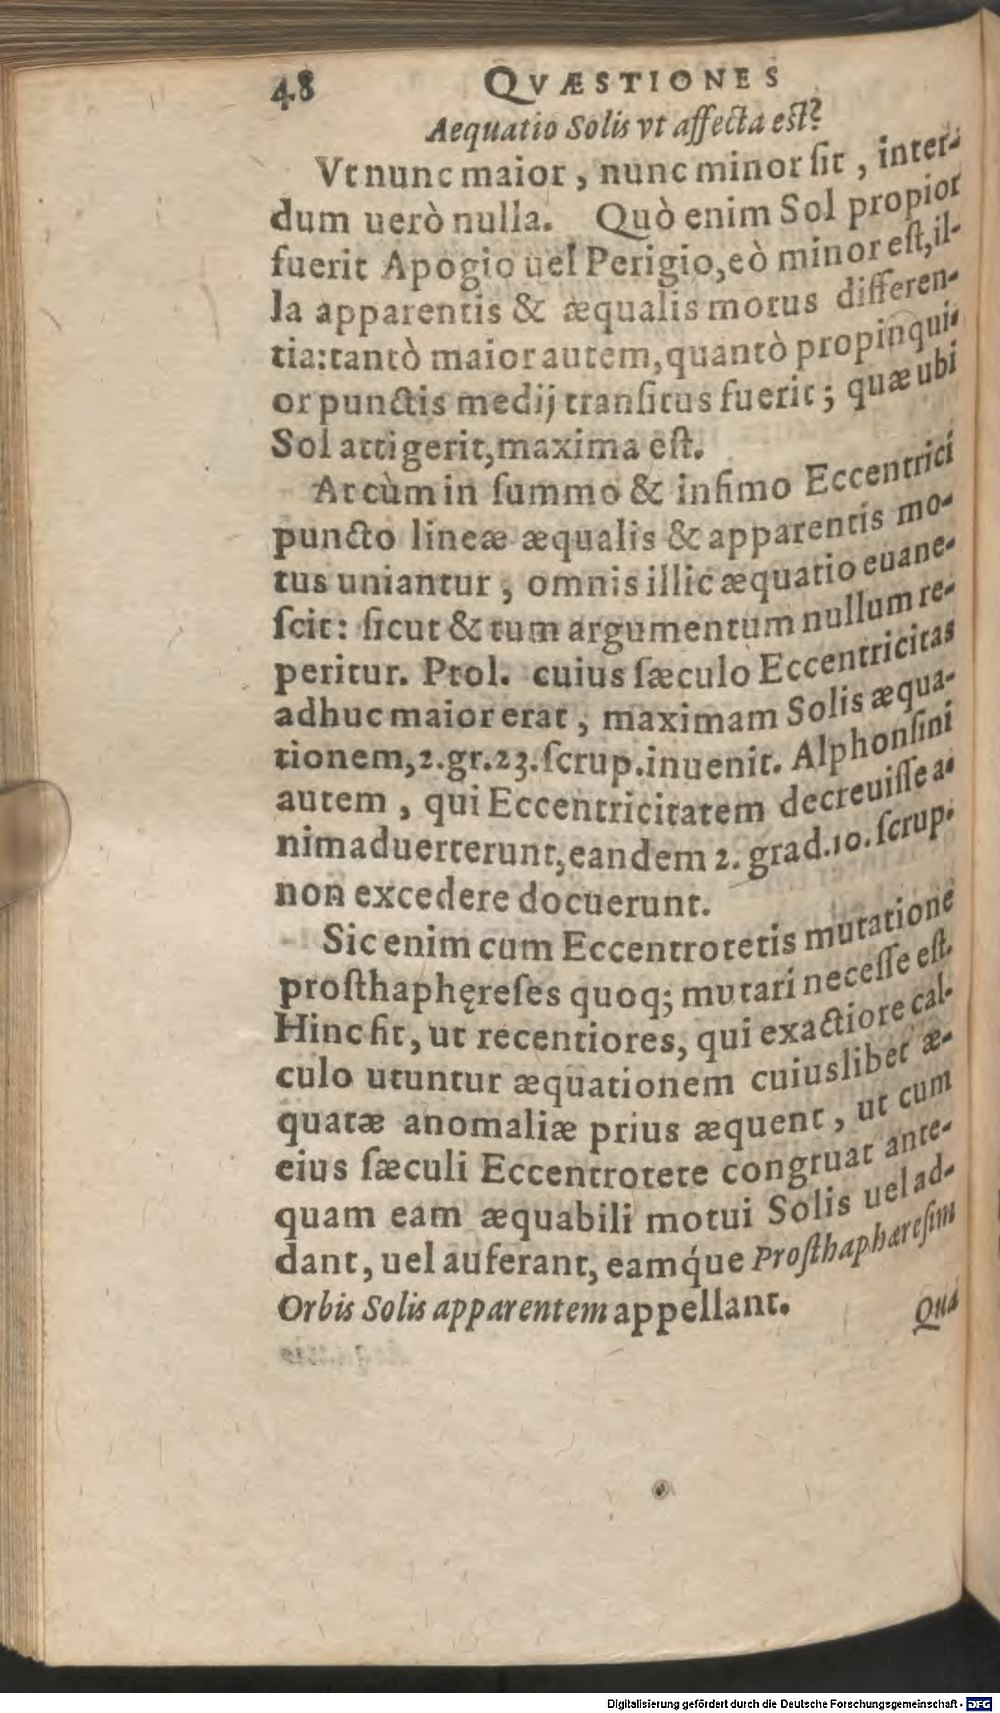 48 QVÆSTIONES
Aequatio Solis vt affecta est?
Vt nunc maior, nunc minor ſit, inter-
dum uerò nulla. Quò enim Sol propior
fuerit Apogio uel Perigio, eò minor eſt, il-
la apparentis & æqualis motus differen-
tia: tantò maior autem, quantò propinqui-
or punctis medij tranſitus fuerit; quæ ubi
Sol attigerit, maxima eſt.
At cùm in ſummo & infimo Eccentrici
puncto lineæ æqualis & apparentis mo-
tus uniantur, omnis illic æquatio euane-
ſcit: ſicut & tum argumentum nullum re-
peritur. Ptol. cuius ſæculo Eccentricitas
adhuc maior erat, maximam Solis æqua-
tionem, 2. gr. 23. ſcrup. inuenit. Alphonſini
autem, qui Eccentricitatem decreuiſſe a-
nimaduerterunt, eandem 2. grad. 10. ſcrup.
non excedere docuerunt.
Sic enim cum Eccentrotetis mutatione
proſthaphęreſes quoq; mutari neceſſe eſt.
Hinc fit, ut recentiores, qui exactiore cal-
culo utuntur æquationem cuiuslibet æ-
quatæ anomaliæ prius æquent, ut cum
eius ſæculi Eccentrotete congruat ante-
quam eam æquabili motui Solis uel ad-
dant, uel auferant, eamq́ue Proſthaphæreſim
Orbis Solis apparentem appellant.
Qua
Digitalisierung gefördert durch die Deutsche Forschungsgemeinschaft - DFG